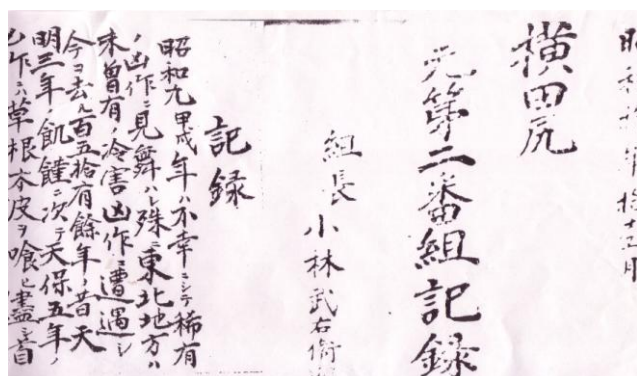 昭和拾年拾十二月
横田尻
元第二番組記録
組長 小林武右衛
記録
昭和九甲戌年ハ不幸ニシテ稀有
ノ凶作ニ見舞ハレ殊ニ東北地方ハ
未曽有ノ冷害凶作ニ遭遇シ
今ヲ去ル百五拾有餘年ノ昔天
明三年ノ飢饉ニ次テ天保五年ノ
凶作ニハ草根木皮ヲ喰ヒ盡シ